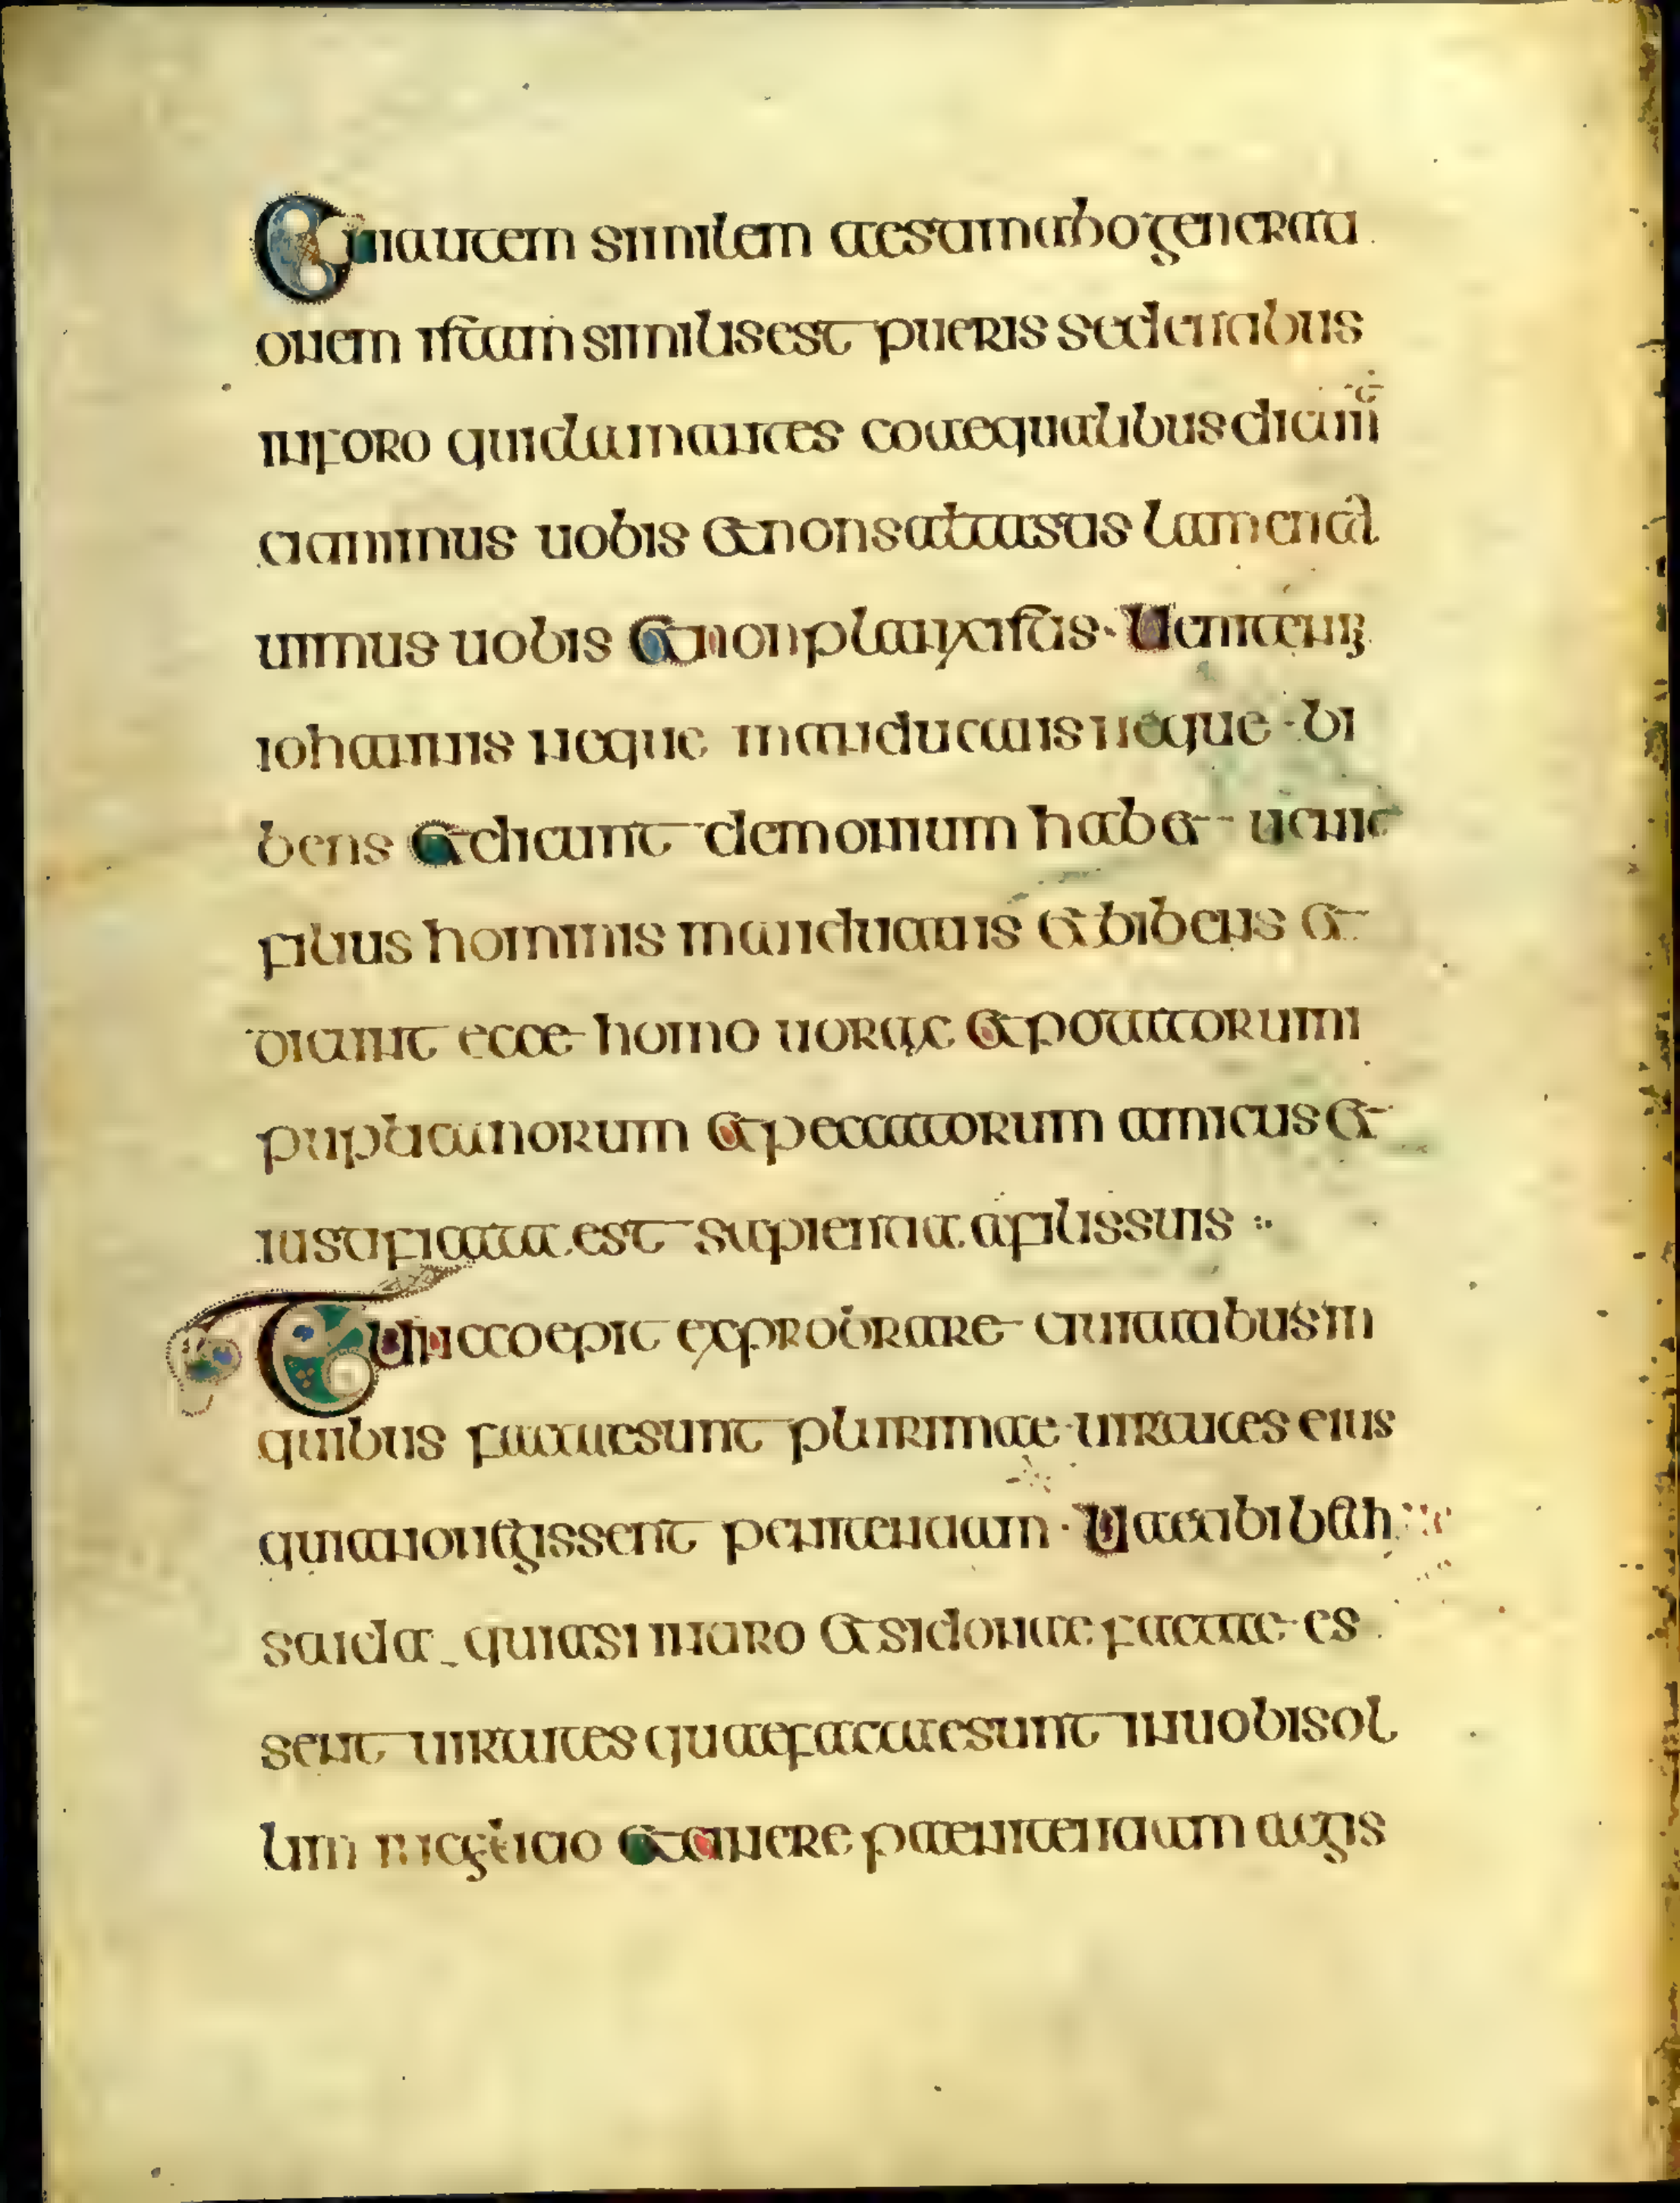 Cui autem similem aestimabo generati
onem istam similis est pueris sedentibus
in foro qui clamantes coaequalibus dicunt
cantauimus uobis et non saltastis lament
uimus uobis et non planxistis · Uenit enim
iohannis neque manducans neque · bi
bens et dicunt demonium habet uenit
filius hominis manducans et bibens et
dicunt ecce homo uorax et potatorum
puplicanorum et peccatorum amicus et
iustificata est sapientia a filis suis :·
Tunc coepit exprobrare ciuitatibus in
quibus factae sunt plurimae uirtutes eius
quia non egissent penitentiam · Uae tibi beth
saida quia si in tiro et sidoniae factae es
sent uirtutes quae factae sunt in uobis ol
lim in et cinere paenitentiam aegis